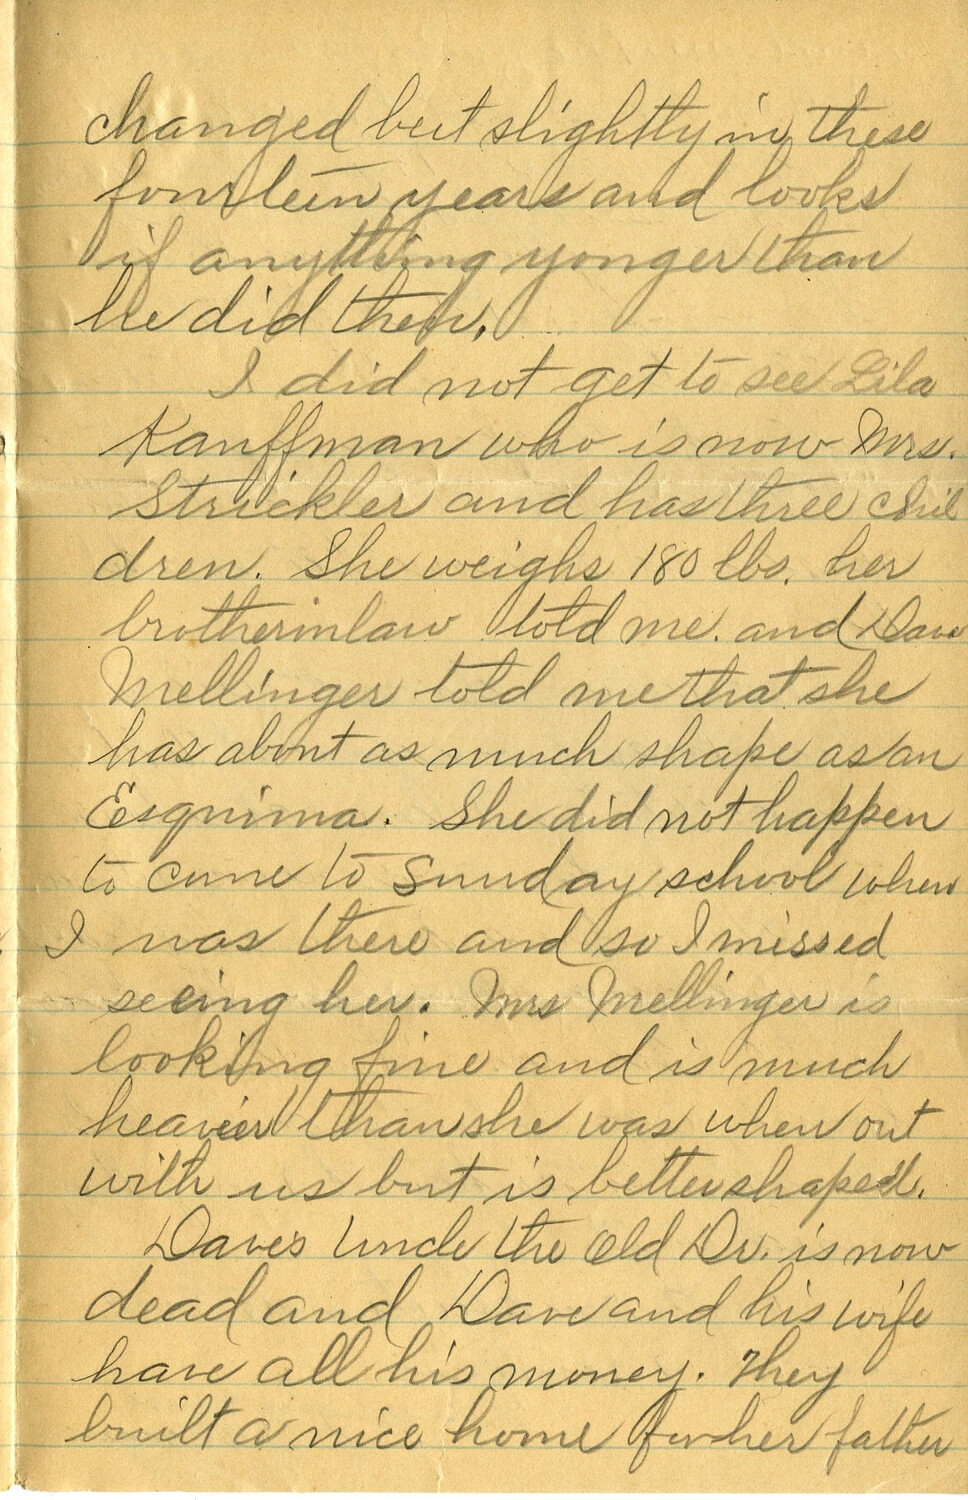 changed but slightly in these
fourteen years and looks
if anything yonger than
he did then.
I did not get to see Lila
Kauffman who is now Mrs.
Strickler and has three chil
dren. She weighs 180 lbs. her
brotherinlaw told me. and Dave
Mellinger told me that she
has about as much shape as an
Esquima. She did not happen
to come to Sunday school when
I was there and so I missed
seeing her. Mrs Mellinger is
looking fine and is much
heavier than she was when out
with us but is better shaped.
Daves Uncle the old Dr. is now
dead and Dave and his wife
have all his money. They
built a nice home for her father